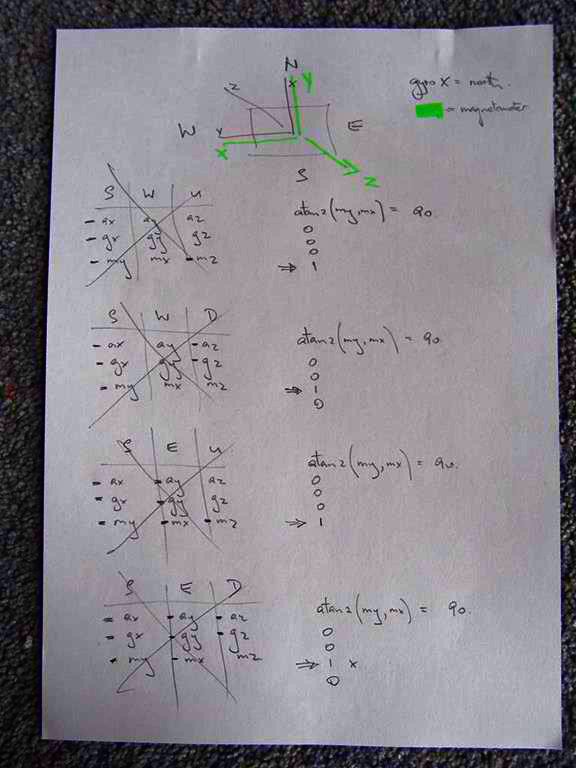 N
gyro X = north.
z x Y
= magnetometer
W Y E
X
S Z
S W U
- ax ay az
- gx gy gz
- my mx - mz
atan2(my,mx) = 90.
0
0
0
⇒ 1
S W D
- ax ay - az
- gx gy - gz
- my mx mz
atan2(my,mx) = 90
0
0
⇒ 1
0
S E U
- ax - ay az
- gx - gy gz
- my - mx - mz
atan2(my,mx) = 90.
0
0
0
⇒ 1
S E D
- ax - ay - az
- gx - gy - gz
- my - mx mz
atan2(my,mx) = 90.
0
0
⇒ 1 x
0